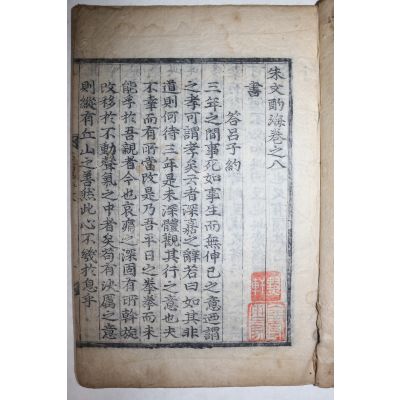 朱文酌海卷之八
書
答呂子約
三年之間事死如事生而無伸已之意迺謂
之孝可謂孝矣云者深嘉之辭若曰如其非
道則何待三年是未深體觀其行之意也夫
不幸而有所當改是乃吾平日之拳拳而未
能孚於吾親者今也哀痛之深固有所斡旋
改移於不動聲氣之中者矣苟有決厲之意
則縱有丘山之善然此心不幾於息乎